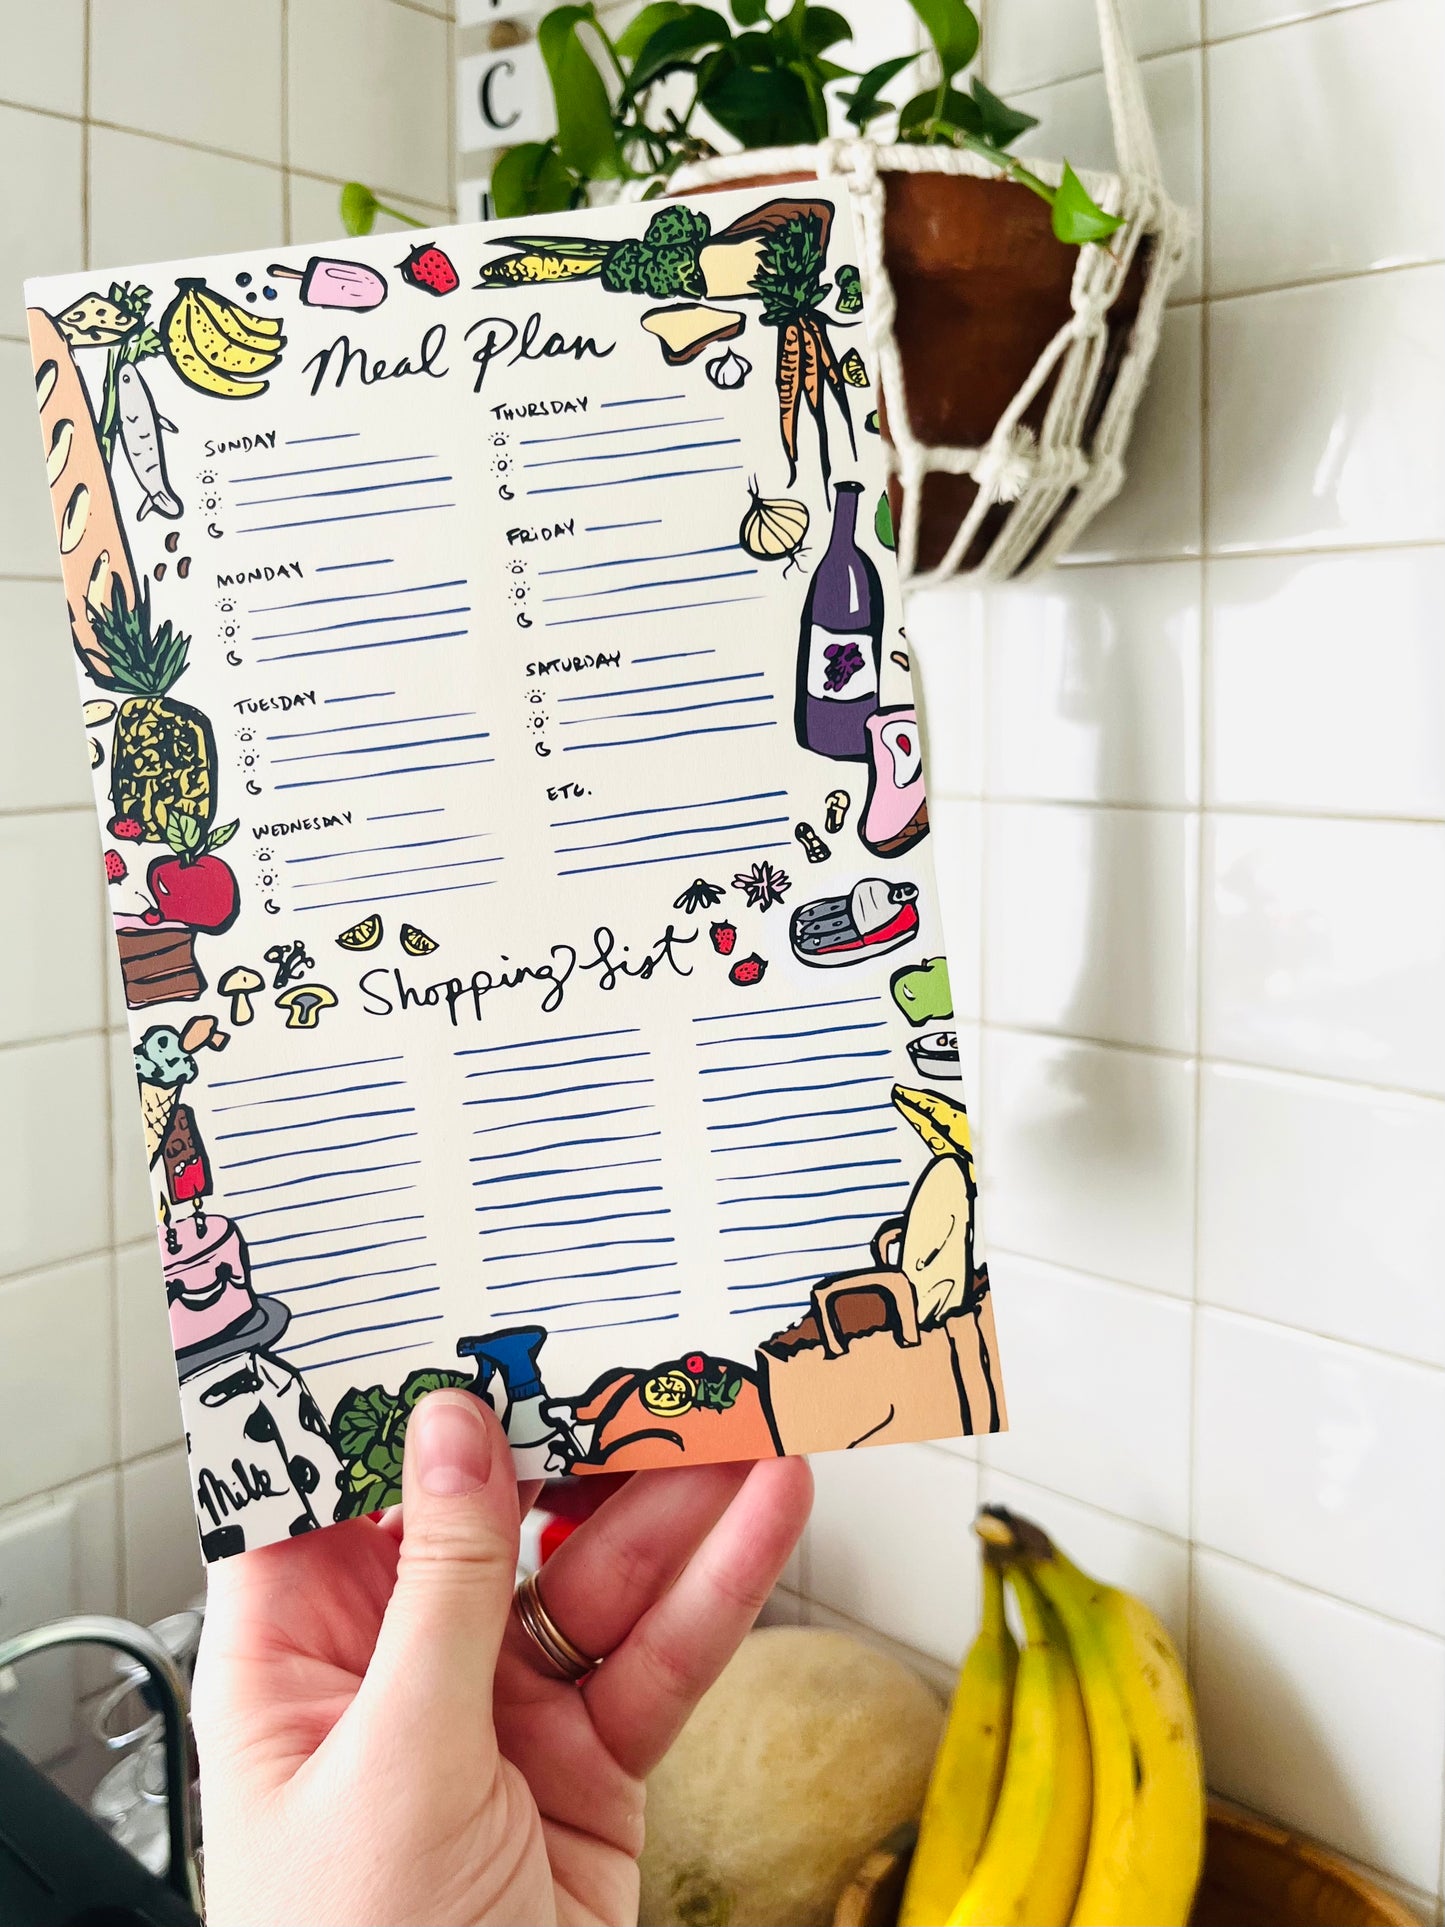 C
Meal Plan
SUNDAY
MONDAY
TUESDAY
WEDNESDAY
THURSDAY
FRIDAY
SATURDAY
ETC.
Shopping List
Milk